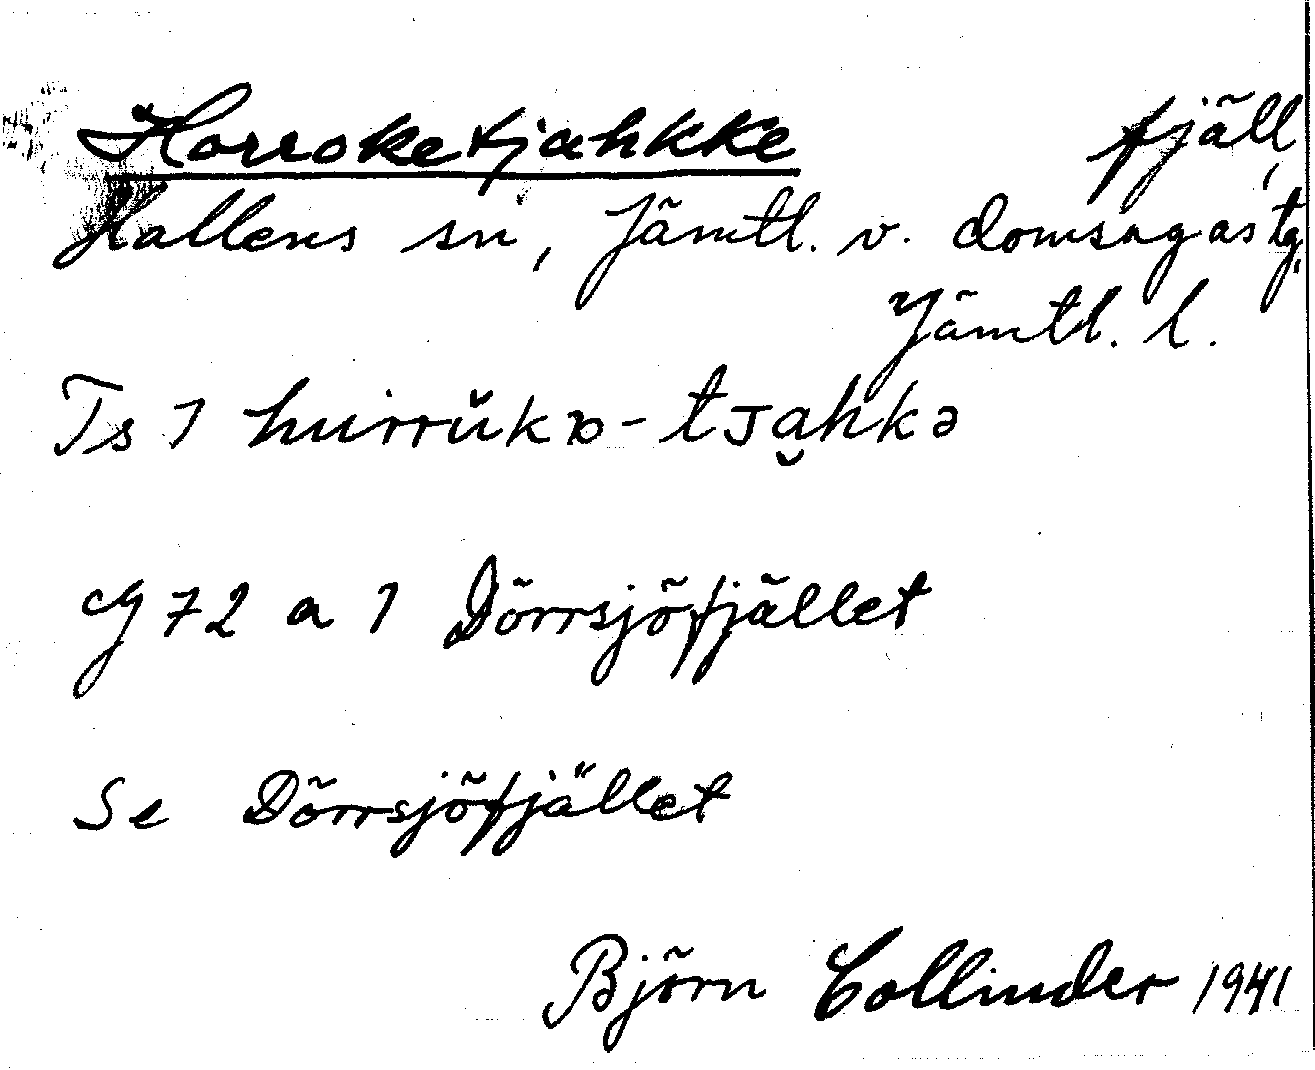 Horroketjahkke fjäll,
Hallens sn, Jämtl. v. domsagas tg,
Jämtl. l.
Ts 1 hurrŭkᴅ-tᴊa̮hkə
G 72 a 1 Dörrsjöfjället
Se Dörrsjöfjället
Björn Collinder 1941